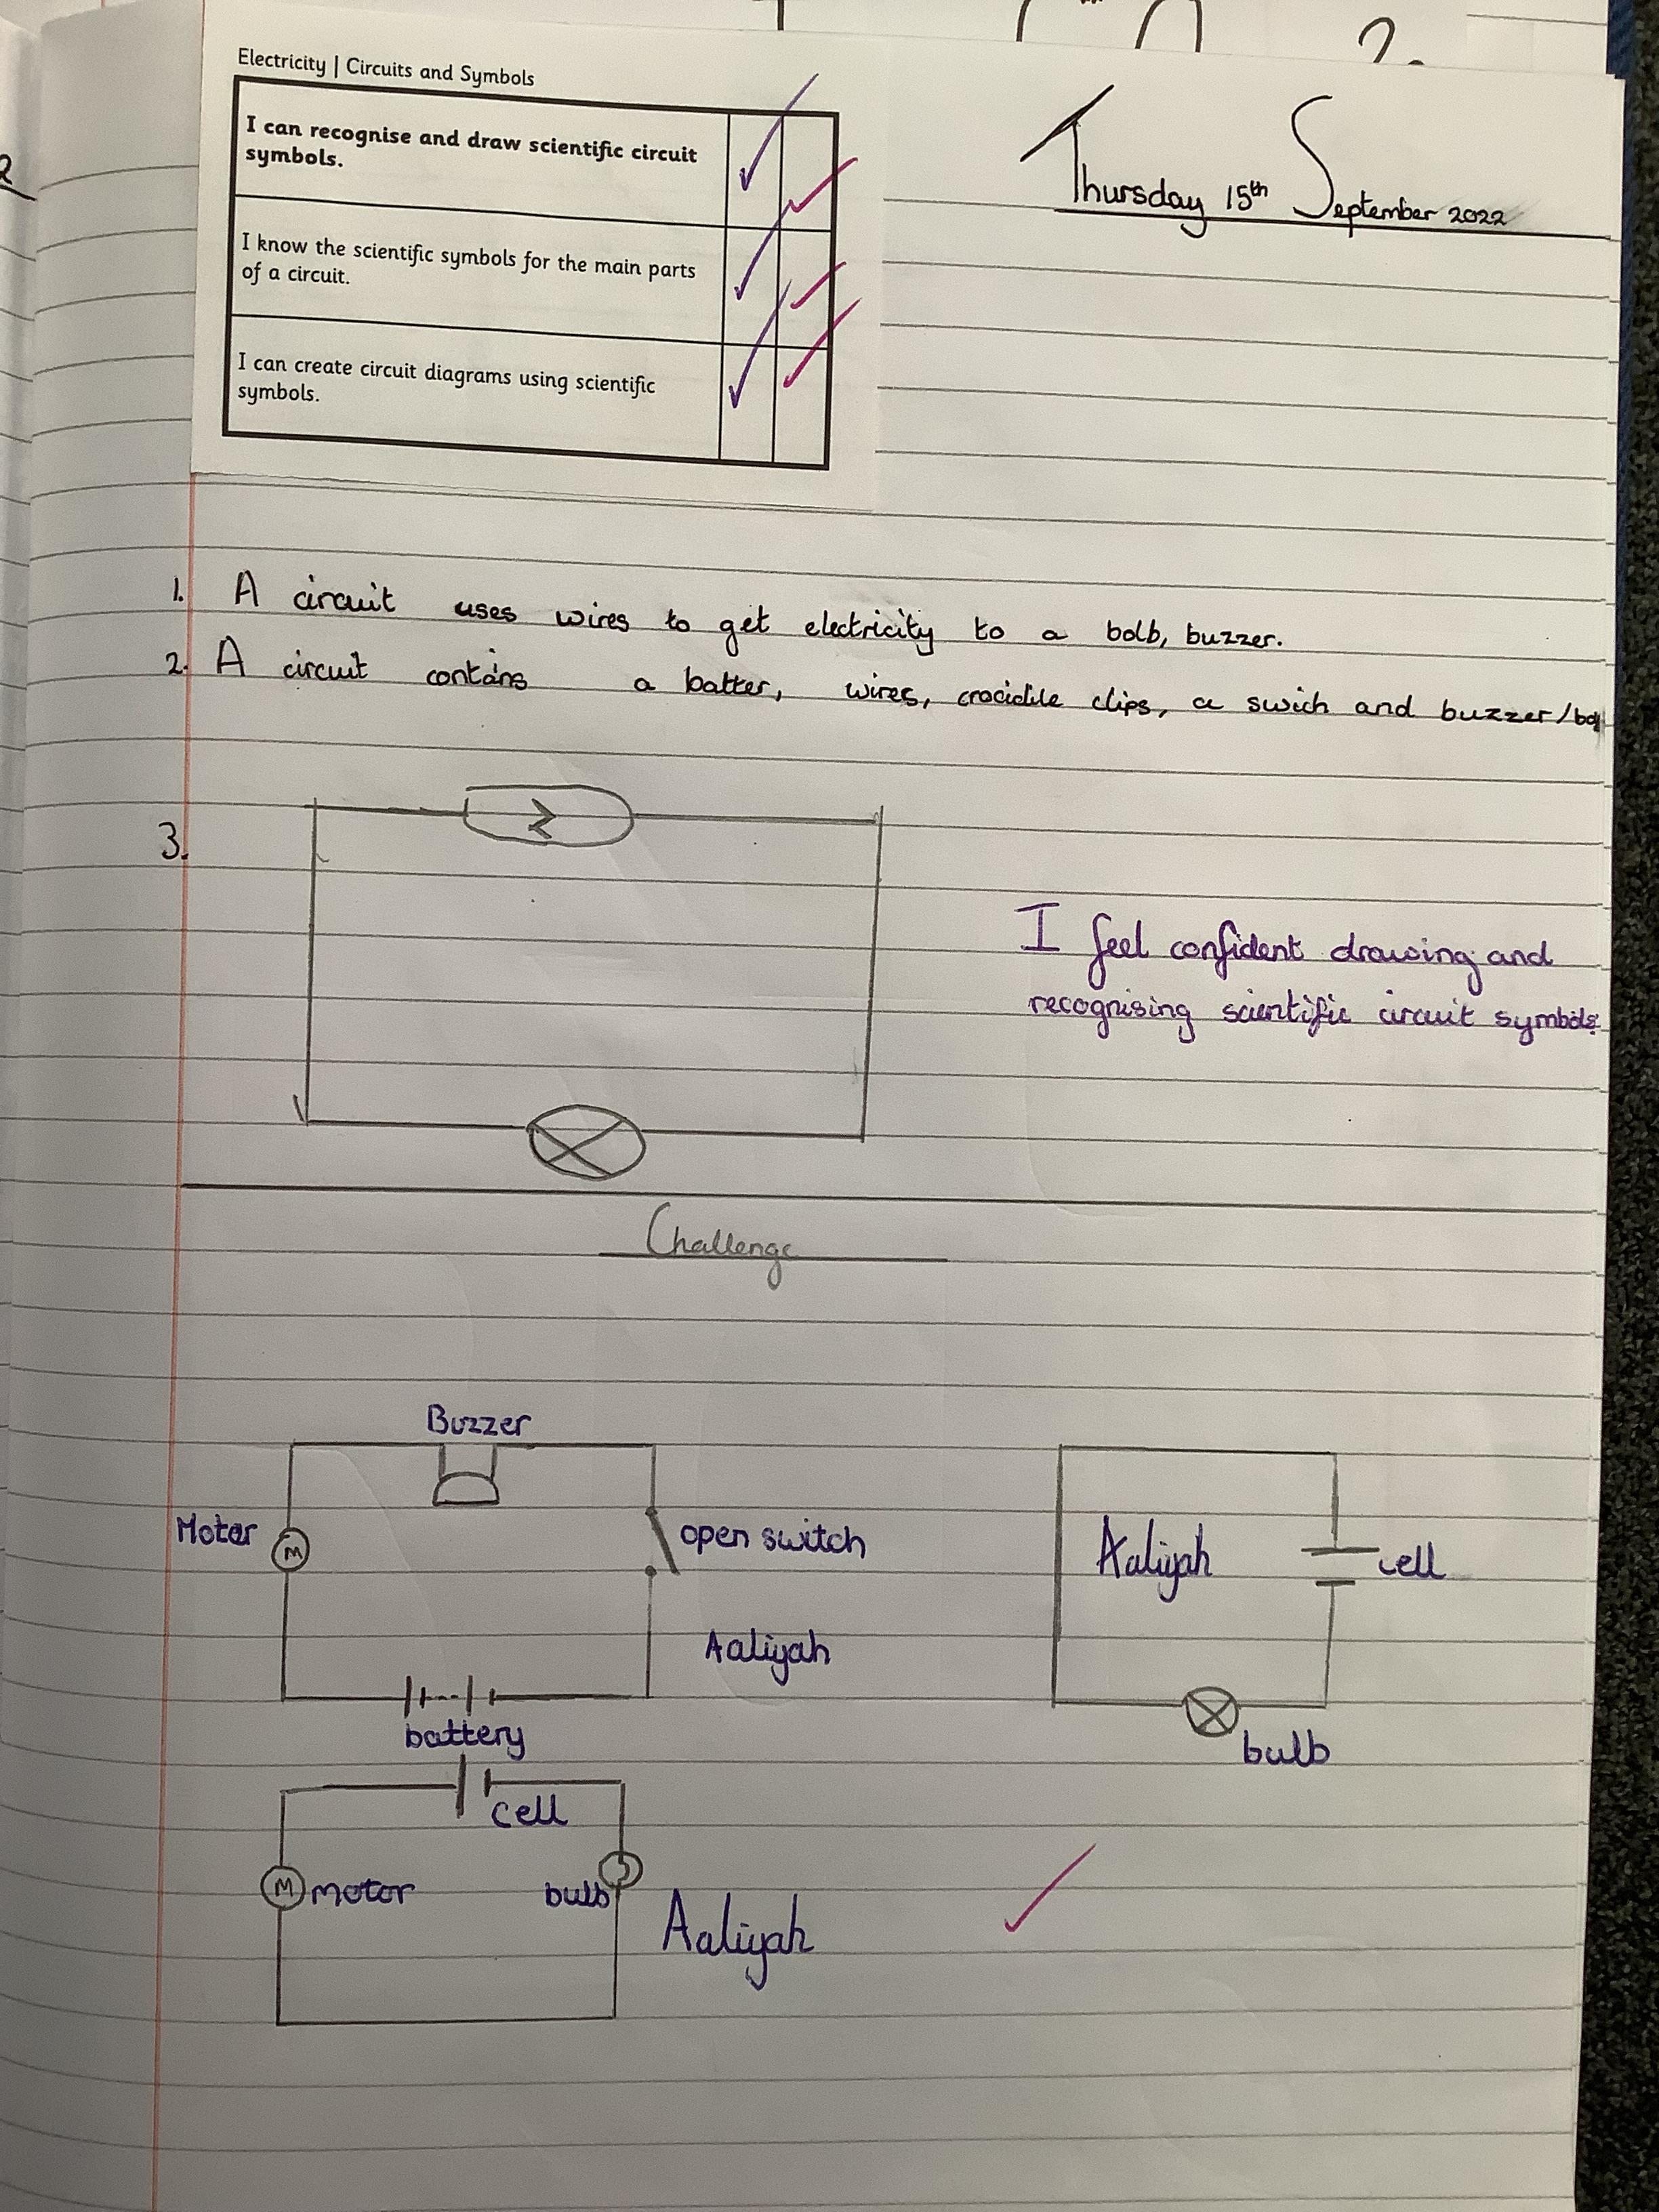 Electricity | Circuits and Symbols
I can recognise and draw scientific circuit
symbols.
I know the scientific symbols for the main parts
of a circuit.
I can create circuit diagrams using scientific
symbols.
Thursday 15th September 2022
1. A circuit uses wires to get electricity to a bolb, buzzer.
2. A circuit contains a batter, wires, crocidile clips, a swich and buzzer/
3.
I feel confident drawing and
recognising scientific circuit symbols.
Challenge
Buzzer
Motor
M
open switch
Aaliyah
battery
Aaliyah
cell
bulb
cell
M motor
bulb
Aaliyah